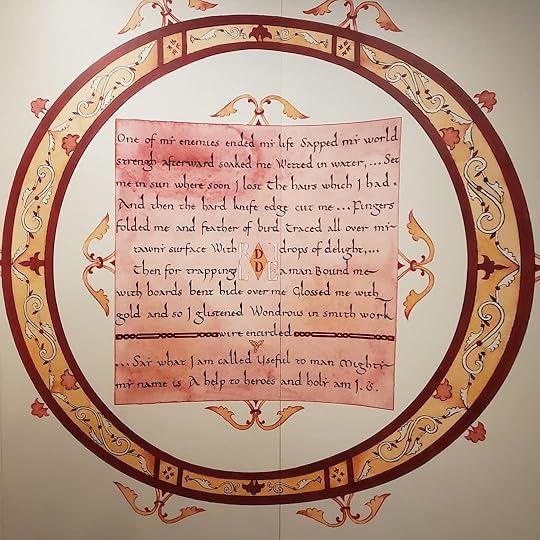 One of my enemies ended my life Sapped my world
strengh afterward soaked me Wetted in water,... Set
me in sun where soon I lost the hairs which I had.
And then the hard knife edge cut me ... Fingers
folded me and feather of bird traced all over my
tawny surface With drops of delight,...
RIDDLE
Then for trapping a man Bound me
with boards bent hide over me Glossed me with
gold and so I glistened Wondrous in smith work
wire encircled
... Say what I am called Useful to man Mighty
my name is A help to heroes and holy am I.